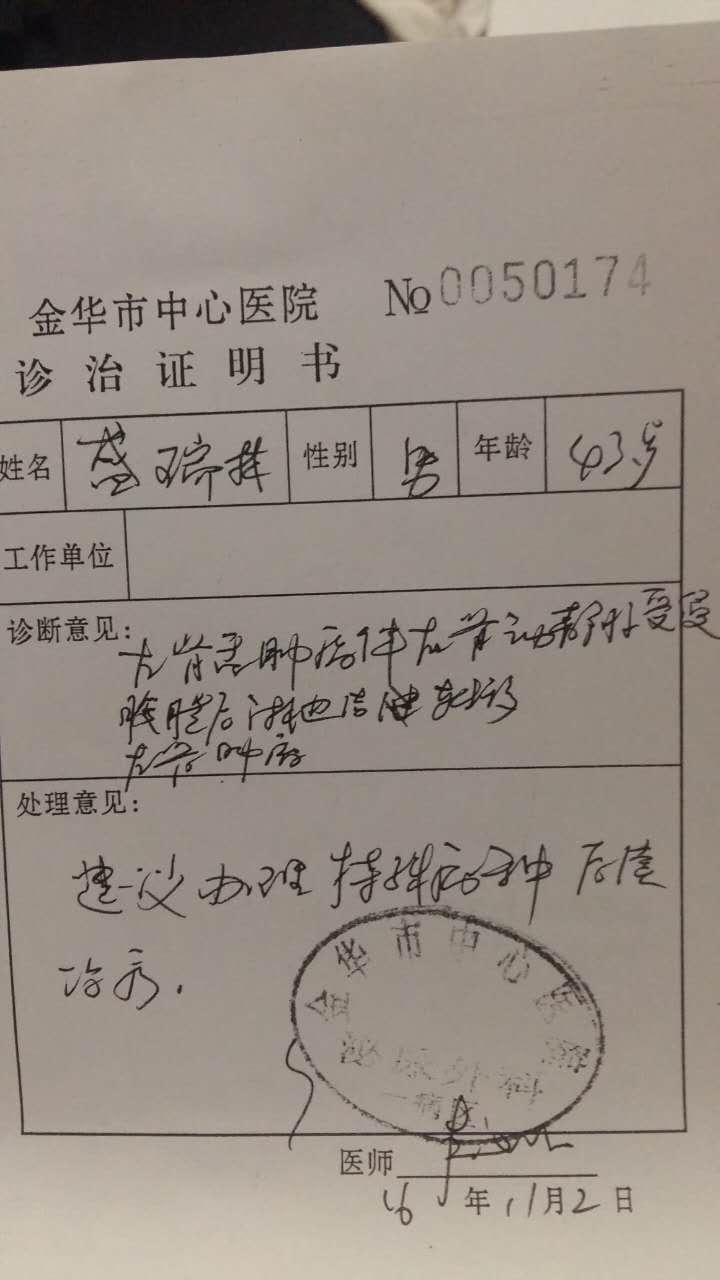 金华市中心医院 № 0050174
诊治证明书
姓名 盛瑞 性别 男 年龄 43岁
工作单位
诊断意见：
左肾恶肿瘤伴左肾动静脉受侵
腹膜后淋巴结 转移
左肾
处理意见：
建议办理特殊病种 后续
治疗.
金华市中心医院
泌尿外科
一病区
医师
16年11月2日